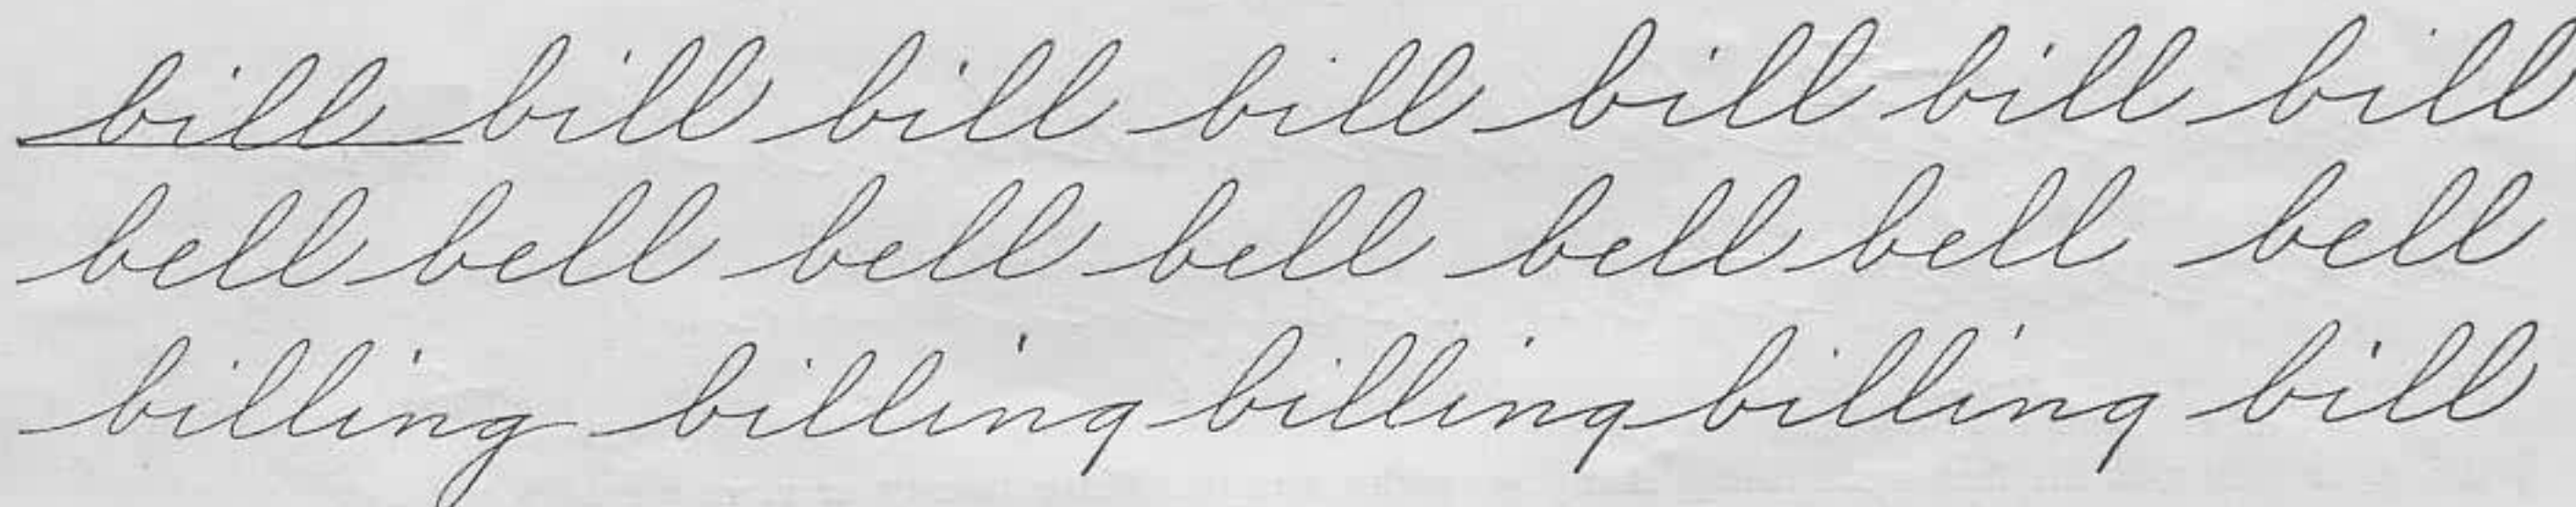 bill bill bill bill bill bill bill
bell bell bell bell bell bell bell
billing billing billing billing bill